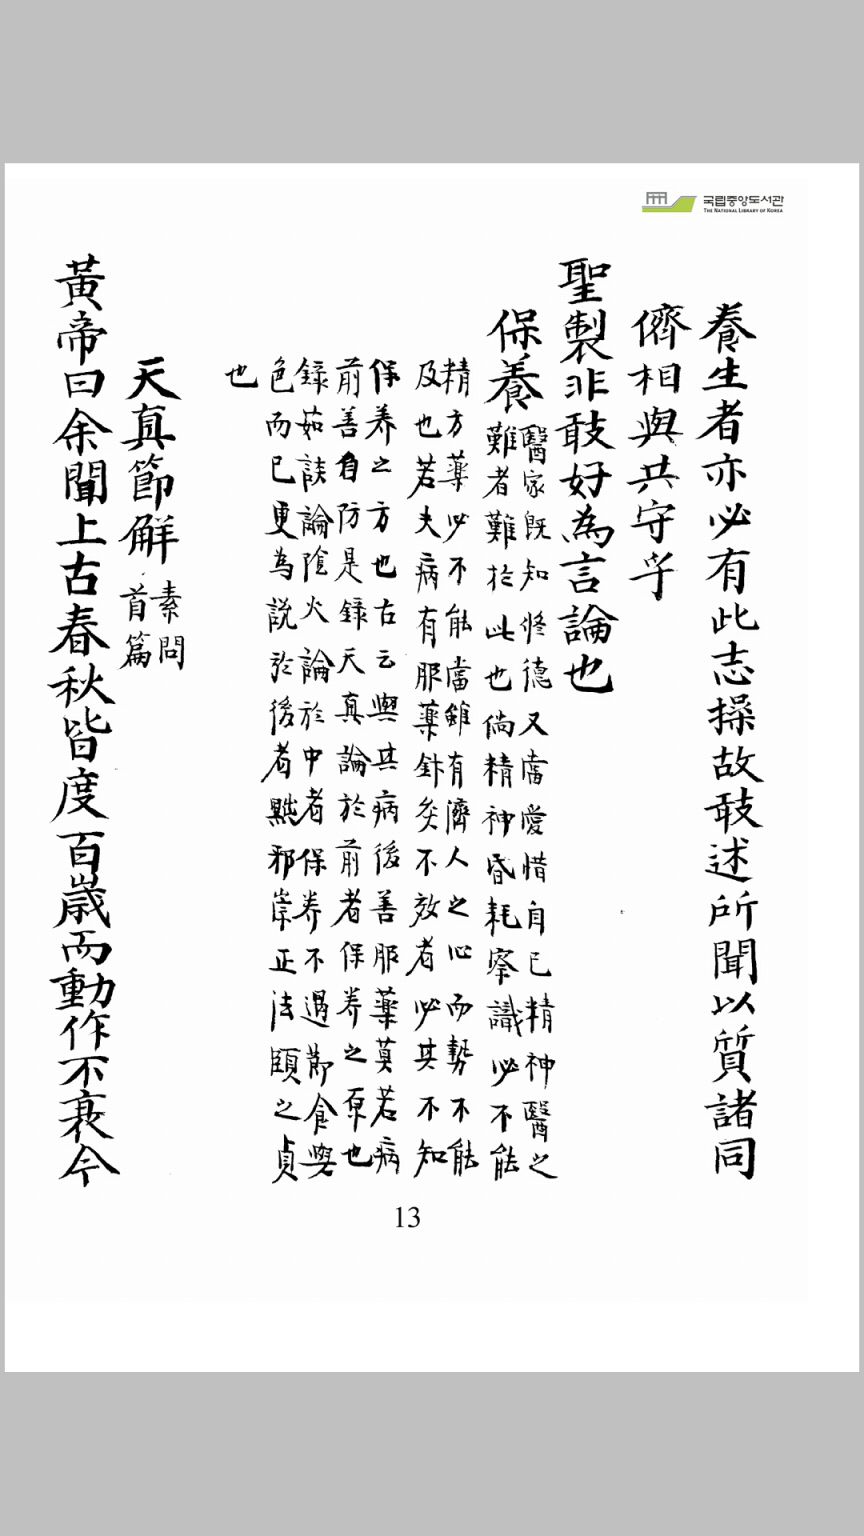 국립중앙도서관
THE NATIONAL LIBRARY OF KOREA
養生者亦必有此志操故敢述所聞以質諸同
儕相與共守乎
聖製非敢好為言論也
保養
醫家既知修德又當愛惜自已精神醫之
難者難於此也倘精神昏耗察識必不能
精方藥必不能當雖有濟人之心而勢不能
及也若夫病有服藥針灸不效者必其不知
保养之方也古云與其病後善服藥莫若病
前善自防是錄天真論於前者保养之原也
錄茹談論陰火論於中者保养不過節食與
色而已更為説於後者黜邪崇正法頤之貞
也
天真節解
素問
首篇
黃帝曰余聞上古春秋皆度百歳而動作不衰今
13